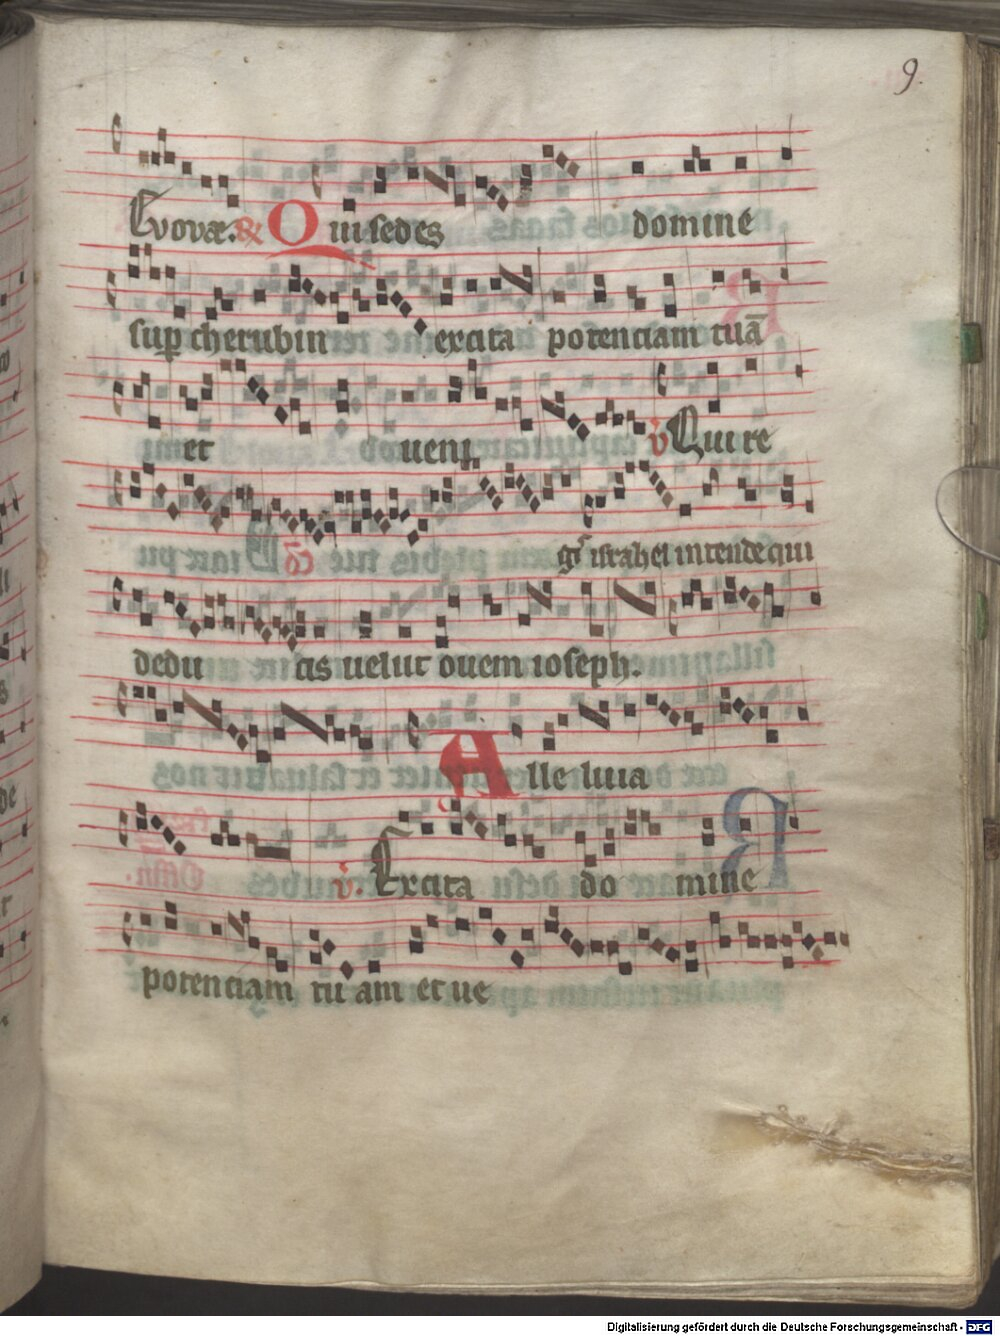 9.
Evovæ. & Qui sedes domine
sup cherubin excita potenciam tuā
et ueni. v Qui re
gis israhel intende qui
dedu cis uelut ouem ioseph.
Alle luia
v. Excita do mine
potenciam tu am et ue
Digitalisierung gefördert durch die Deutsche Forschungsgemeinschaft - DFG